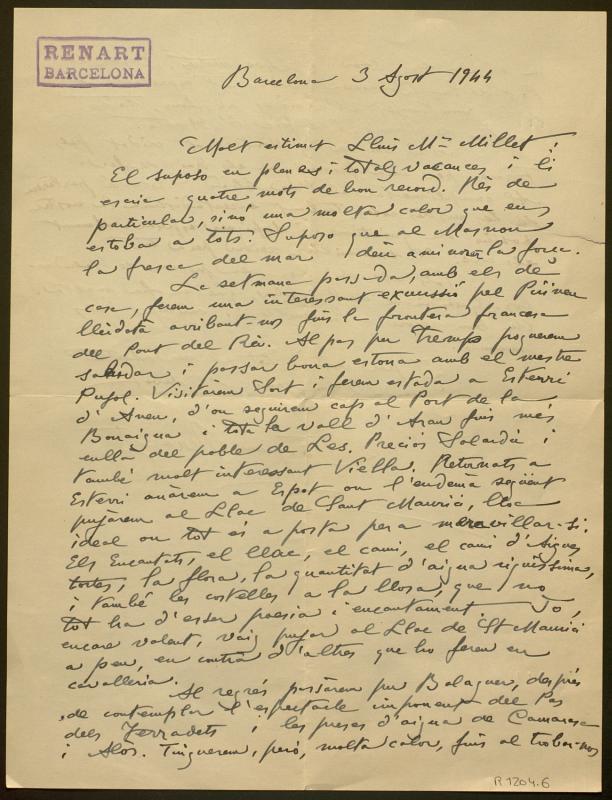 RENART
BARCELONA
Barcelona 3 Agost 1944
Molt estimat Lluís Mª Millet:
El suposo en plenes i totals vacances i li
escric quatre mots de bon record. Rès de
particular, sinó una molta calor que ens
estoba a tots. Suposo que al Masnou
la fresca del mar deu aminorar la força.
La setmana passada, amb els de
casa, ferem una interessant excussió pel Pirineu
lleidatà arribant-nos fins la frontera francesa
del Pont del Rei. Al pas per Tremp poguerem
saludar i passar bona estona amb el mestre
Pujol. Visitàrem Sort i ferem estada a Esterri
d'Aneu, d'on seguirem cap al Port de la
Bonaigua i tota la vall d'Aran fins més
enllà del poble de Les. Preciós Salardú i
també molt interessant Viella. Retornats a
Esterri anàrem a Espot on l'endemà següent
pujàrem al Llac de Sant Maurici, lloc
ideal on tot és a posta per a meravillar-s'hi.
Els Encantats, el llac, el camí, el camí d'Aigues
tortes, la flora, la quantitat d'aigua riquíssima,
i també les costelles a la llosa, que no
tot ha d'esser poesia i encantament. Jo,
encare valent, vaig pujar al Llac de St Maurici
a peu, en contra d'altres que ho feren en
cavalleria.
Al regrés passàrem per Balaguer, després
de contemplar l'espectacle imponent del Pas
dels Terradets i les preses d'aigua de Camarasa
i Alòs. Tinguerem, però, molta calor, fins al trobar-nos
R 1204.6